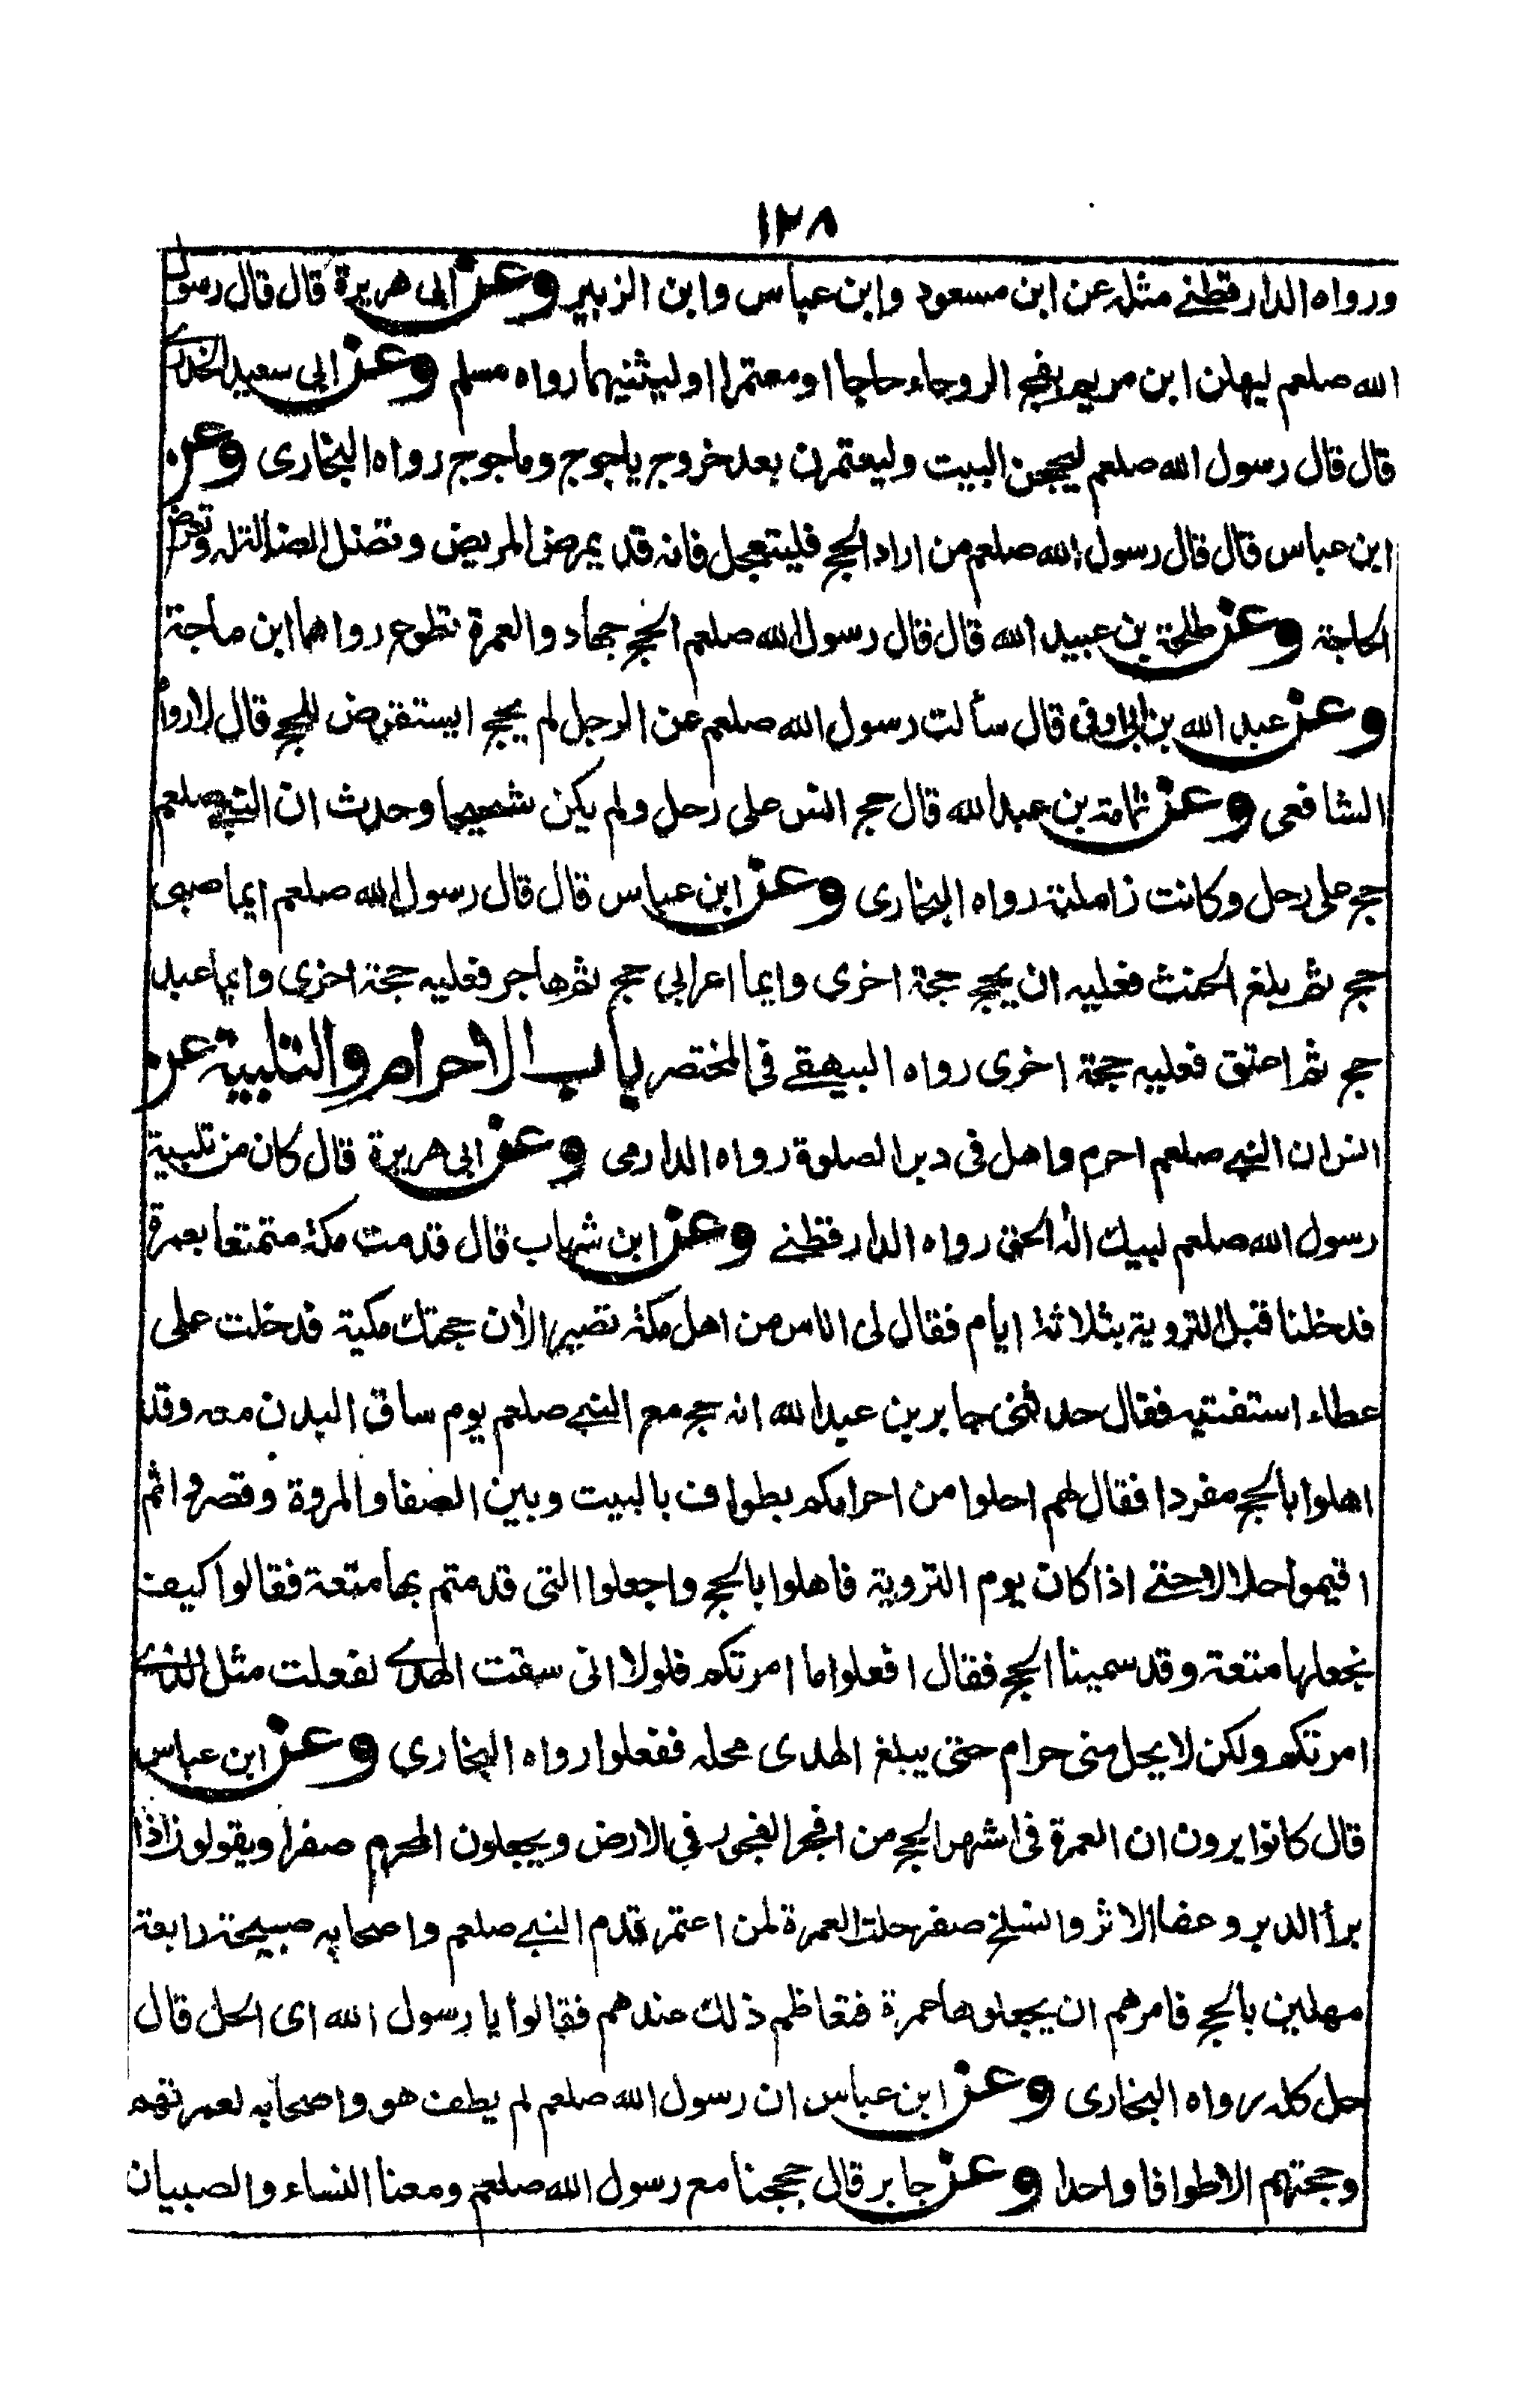 ١٢٨
ورواه الدارقطنے مثله عن ابن مسعود وابن عباس وابن الزبير وعن ابى هريرة قال قال رسول
الله صلعم ليهلن ابن مريم بفج الروحاء حاجا او معتمرا او ليثنيهما رواه مسلم وعن ابى سعيد الخدرى
قال قال رسول الله صلعم ليحجن البيت وليعتمرن بعد خروج ياجوج وماجوج رواه البخارى وعن
ابن عباس قال قال رسول الله صلعم من اراد الحج فليتعجل فانه قد يمرض المريض وتضل الضالة وتعرض
الحاجة وعن طلحة بن عبيد الله قال قال رسول الله صلعم الحج جهاد والعمرة تطوع رواهما ابن ماجة
وعن عبد الله بن ابى اوفى قال سألت رسول الله صلعم عن الرجل لم يحج ايستقرض للحج قال لا رواه
الشافعى وعن ثمامة بن عبد الله قال حج انس على رحل ولم يكن شحيحا وحدث ان النبے صلعم
حج على رحل وكانت زاملته رواه البخارى وعن ابن عباس قال قال رسول الله صلعم ايما صبى
حج ثم بلغ الحنث فعليه ان يحج حجة اخرى وايما اعرابي حج ثم هاجر فعليه حجة اخرى وايما عبد
حج ثم اعتق فعليه حجة اخرى رواه البيهقے فى المختصر باب الاحرام والتلبية عن
انس ان النبے صلعم احرم واهل فى دبر الصلوة رواه الدارمى وعن ابى هريرة قال كان من تلبية
رسول الله صلعم لبيك اله الحق رواه الدارقطنے وعن ابن شهاب قال قدمت مكة متمتعا بعمرة
فدخلنا قبل التروية بثلاثة ايام فقال لى اناس من اهل مكة تصير الأن حجتك مكية فدخلت على
عطاء استفتيه فقال حدثنى جابر بن عبد الله انه حج مع النبے صلعم يوم ساق البدن معه وقد
اهلوا بالحج مفردا فقال لهم احلوا من احرامكم بطواف بالبيت وبين الصفا والمروة وقصروا ثم
اقيموا حلالا وحتے اذا كان يوم التروية فاهلوا بالحج واجعلوا التى قدمتم بها متعة فقالوا كيف
نجعلها متعة وقد سمينا الحج فقال افعلوا ما امرتكم فلولا انى سقت الهدى لفعلت مثل الذى
امرتكم ولكن لا يحل منى حرام حتى يبلغ الهدى محله ففعلوا رواه البخارى وعن ابن عباس
قال كانوا يرون ان العمرة فى اشهر الحج من افجر الفجور فى الارض ويجعلون المحرم صفرا ويقولون اذا
برأ الدبر وعفا الاثر وانسلخ صفر حلت العمرة لمن اعتمر قدم النبے صلعم واصحابه صبيحة رابعة
مهلين بالحج فامرهم ان يجعلوها عمرة فتعاظم ذلك عندهم فقالوا يا رسول الله اى الحل قال
حل كله رواه البخارى وعن ابن عباس ان رسول الله صلعم لم يطف هو واصحابه لعمرتهم
وحجتهم الا طوافا واحدا وعن جابر قال حججنا مع رسول الله صلعم ومعنا النساء والصبيان